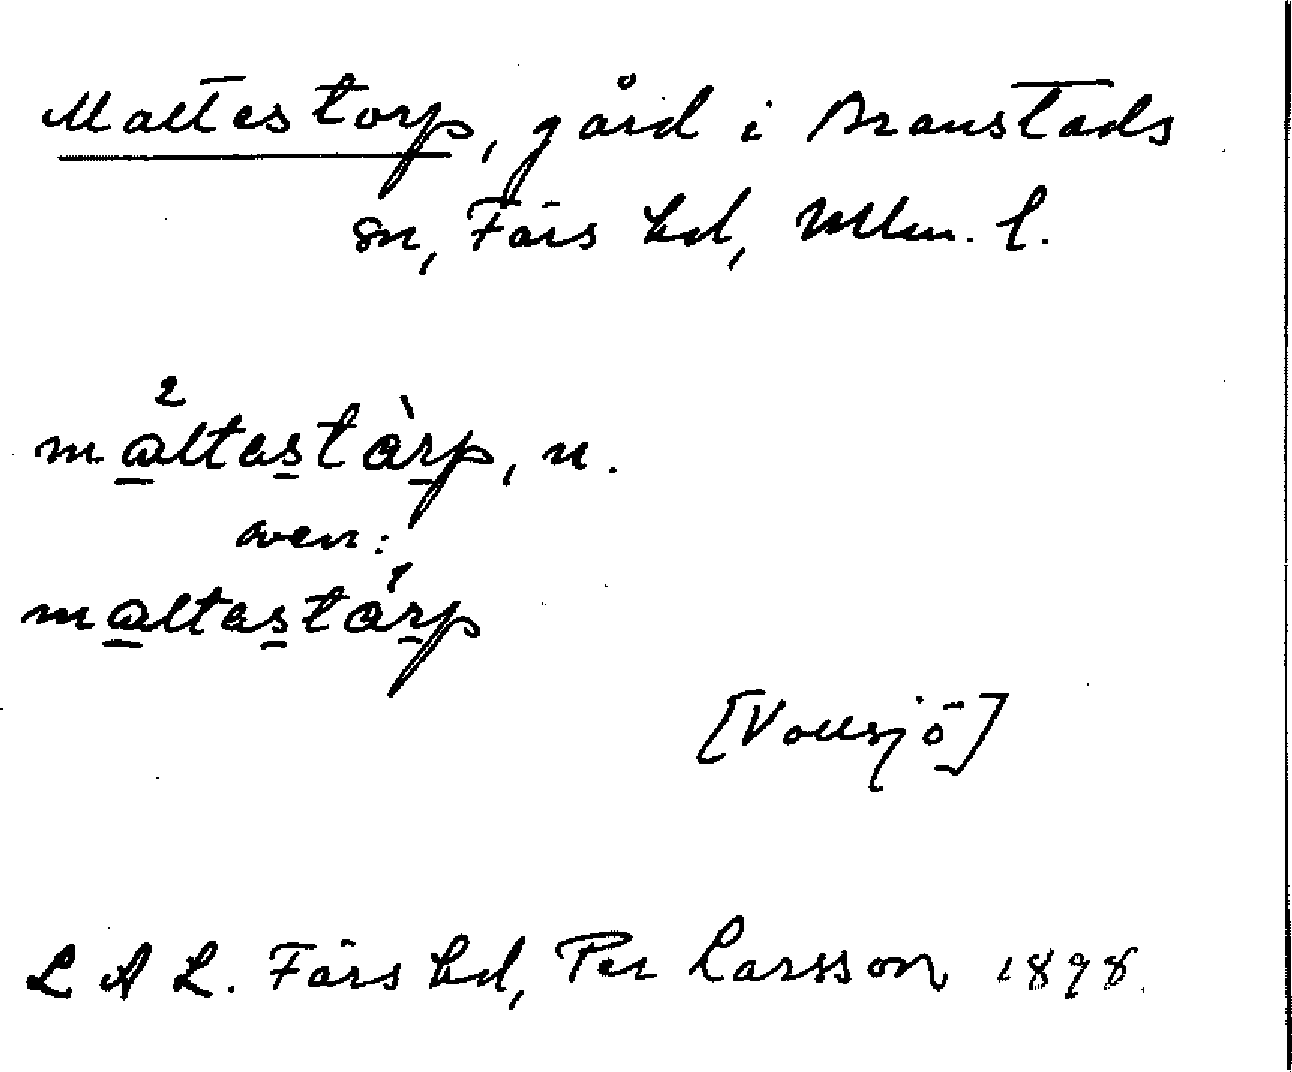 Maltestorp, gård i Branstads
sn, Färs hd, Mlm. l.
maltastàrp, n.
även:
maltastárp
[Vollsjö]
L A L. Färs hd, Per Larsson 1898.